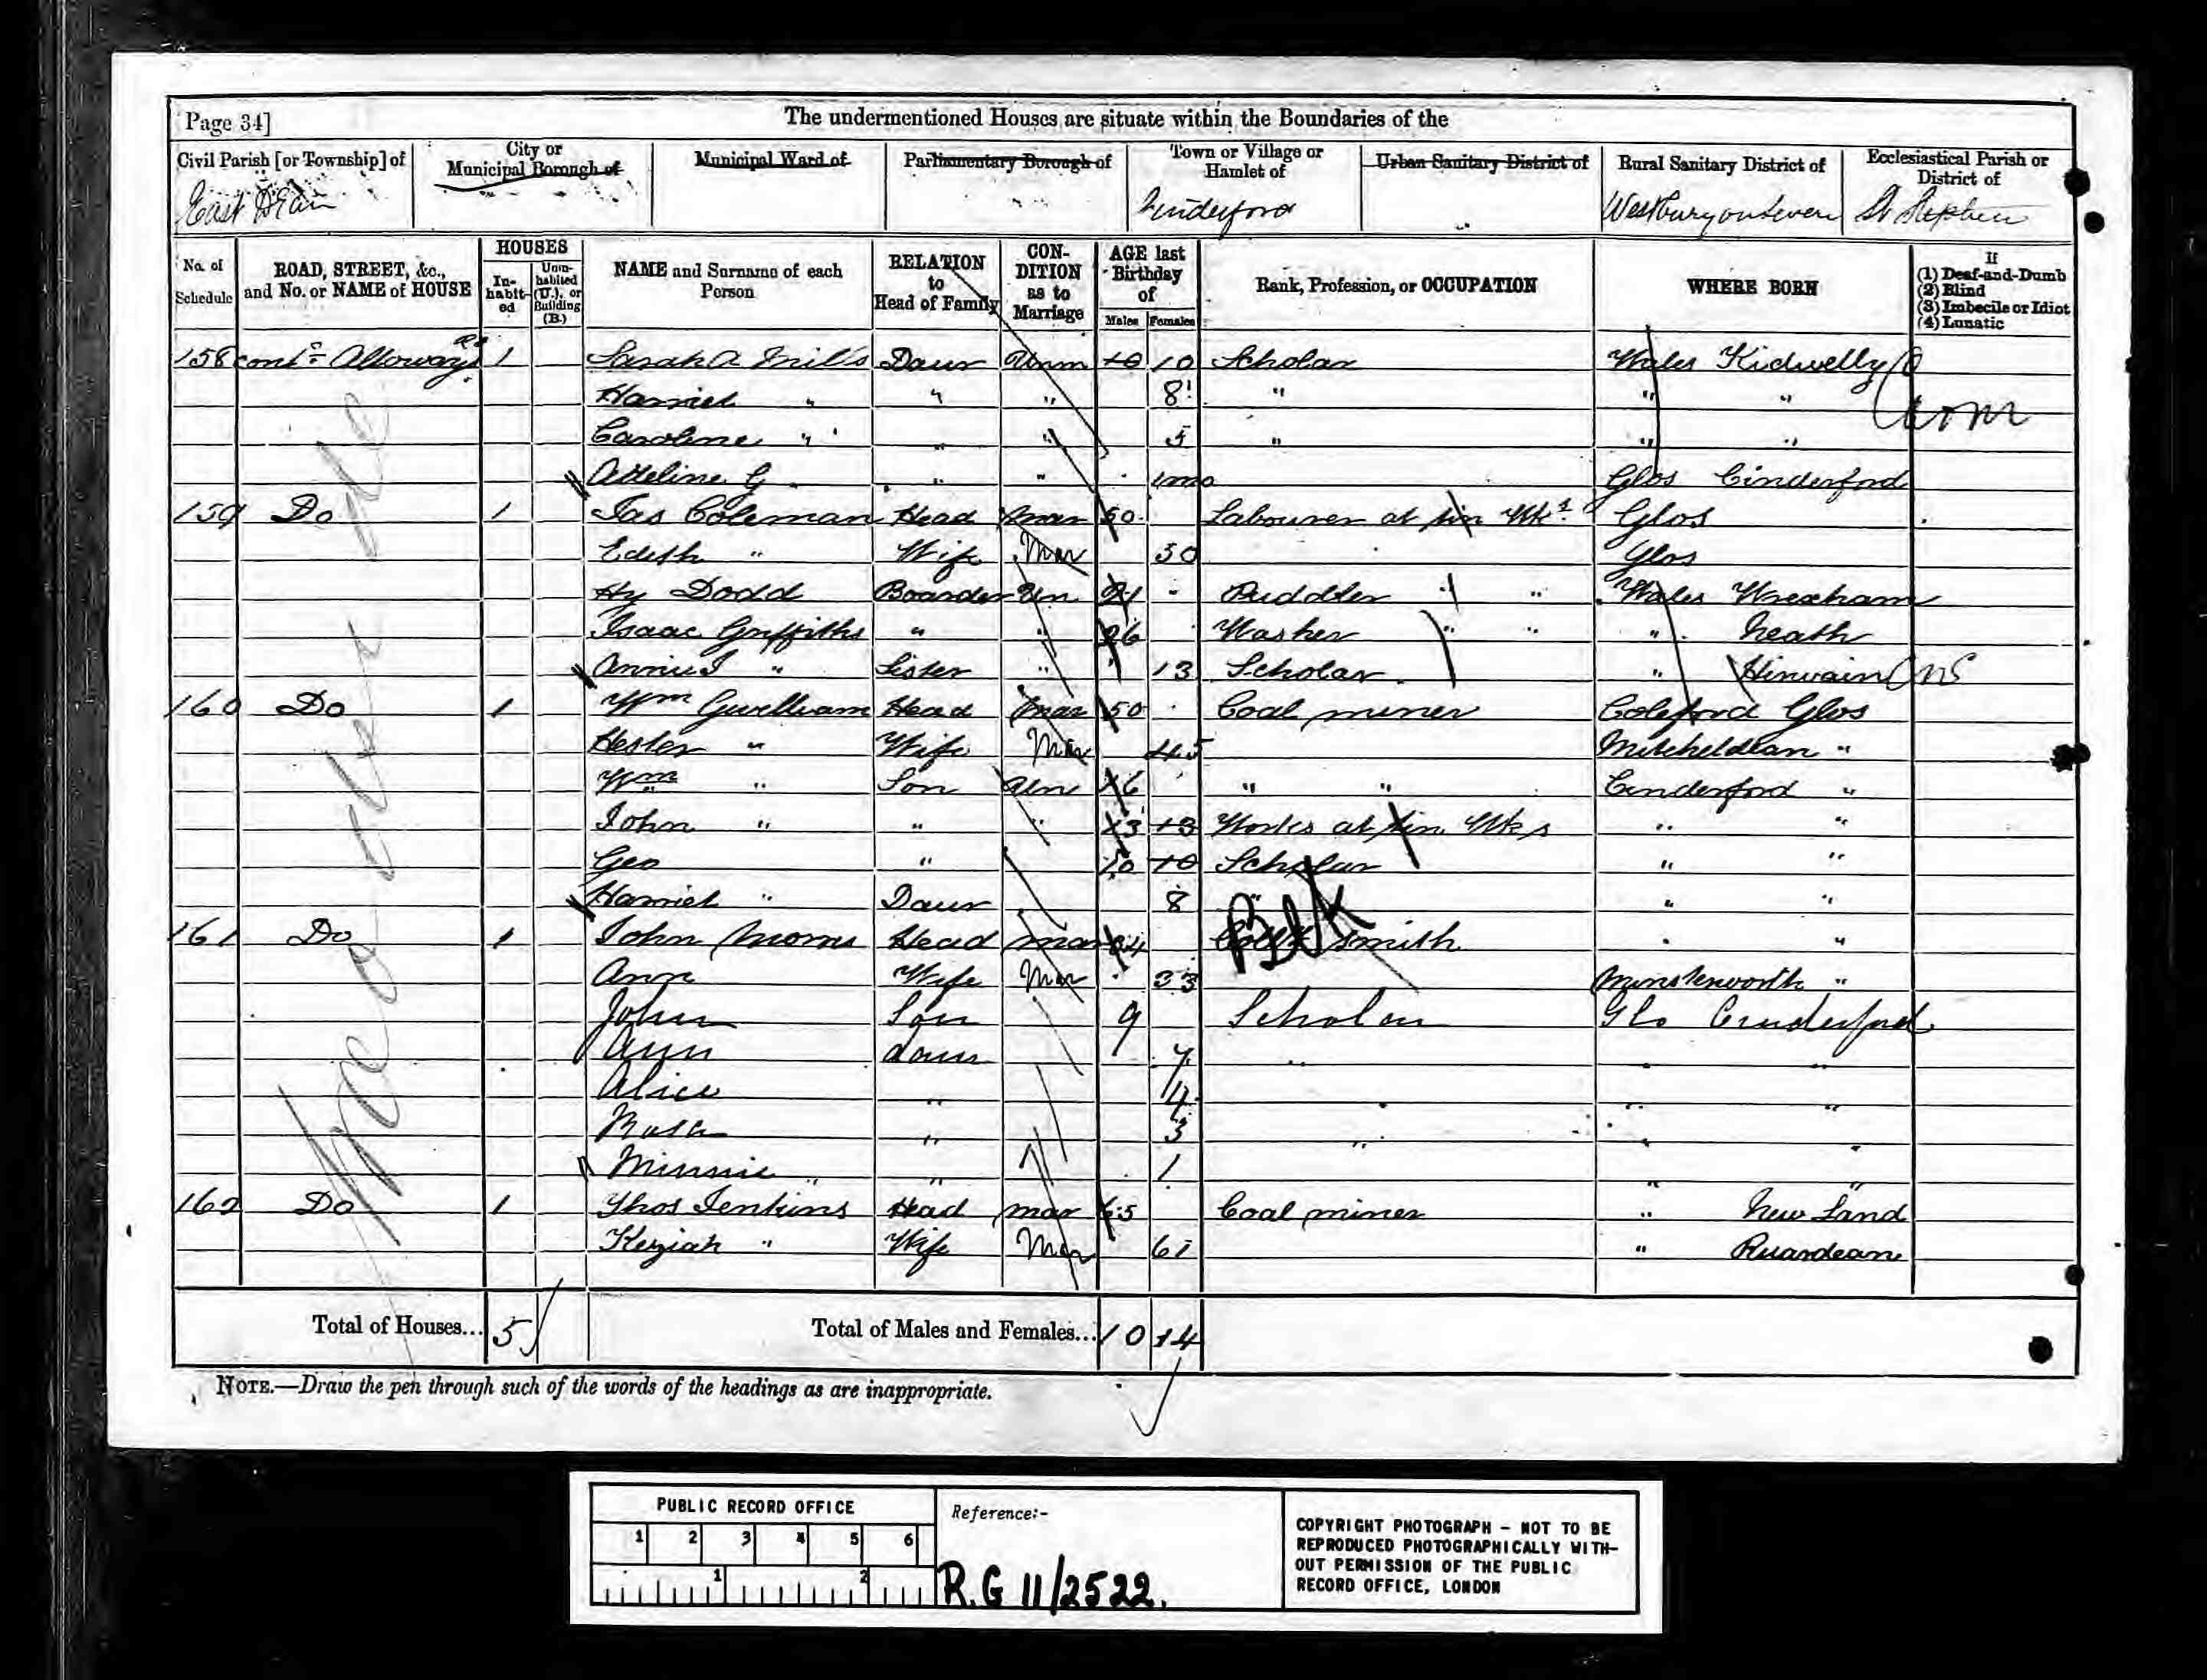 Page 34]
The undermentioned Houses are situate within the Boundaries of the
Civil Parish [or Township] of
City or Municipal Borough of
Municipal Ward of
Parliamentary Borough of
Town or Village or Hamlet of
Urban Sanitary District of
Rural Sanitary District of
Ecclesiastical Parish or District of
East Dean
Cinderford
Westbury on Severn
St Stephen
No. of Schedule
ROAD, STREET, &c., and No. or NAME of HOUSE
HOUSES
In-habit-ed
Unin-habited (U.), or Building (B.)
NAME and Surname of each Person
RELATION to Head of Family
CON-DITION as to Marriage
AGE last Birthday of
Males
Females
Rank, Profession, or OCCUPATION
WHERE BORN
If
(1) Deaf-and-Dumb
(2) Blind
(3) Imbecile or Idiot
(4) Lunatic
158 contd Alloways 1 Sarah A Mills Daur Unm 10 10 Scholar Wales Kidwelly
Harriet " " " 8 " " "
Caroline " " " 5 " " "
Adeline G " " 1mo Glos Cinderford
159 Do 1 Jas Coleman Head Mar 50 Labourer at tin Wks Glos
Edith " Wife Mar 50 Glos
Hy Dodd Boarder Un 21 Puddler " " Wales Wrexham
Isaac Griffiths " " 26 Washer " " " Neath
Annie J " Sister " 13 Scholar " Hirwain
160 Do 1 Wm Gwilliam Head Mar 50 Coal miner Coleford Glos
Hester " Wife Mar 45 Mitcheldean "
Wm " Son Un 16 " " Cinderford "
John " " " 13 13 Works at tin Wks " "
Geo " 10 10 Scholar " "
Harriet " Daur 8 " " "
161 Do 1 John Morris Head Mar 34 Blk smith " "
Ann Wife Mar 33 Minsterworth "
John Son 9 Scholar Glo Cinderford
Ann daur 7 " " "
Alice " 4 " "
" 3 " " "
Minnie " " 1 " "
162 Do 1 Thos Jenkins Head Mar 65 Coal miner " New Land
Keziah " Wife Mar 61 " Ruardean
Total of Houses... 5
Total of Males and Females... 10 14
NOTE.—Draw the pen through such of the words of the headings as are inappropriate.
PUBLIC RECORD OFFICE
1 2 3 4 5 6
1 2
Reference:-
R.G 11/2522.
COPYRIGHT PHOTOGRAPH – NOT TO BE
REPRODUCED PHOTOGRAPHICALLY WITH-
OUT PERMISSION OF THE PUBLIC
RECORD OFFICE, LONDON